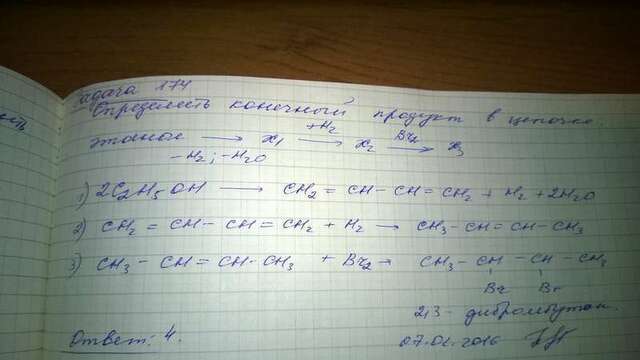 задача 174
Определить конечный продукт в цепочке.
этанол → X₁ +H₂ → X₂ Br₂ → X₃
-H₂; -H₂O
1) 2C₂H₅OH → CH₂ = CH - CH = CH₂ + H₂ + 2H₂O
2) CH₂ = CH - CH = CH₂ + H₂ → CH₃ - CH = CH - CH₃
3) CH₃ - CH = CH - CH₃ + Br₂ → CH₃ - CH - CH - CH₃
Br Br
2,3 - дибромбутан.
Ответ: 4.